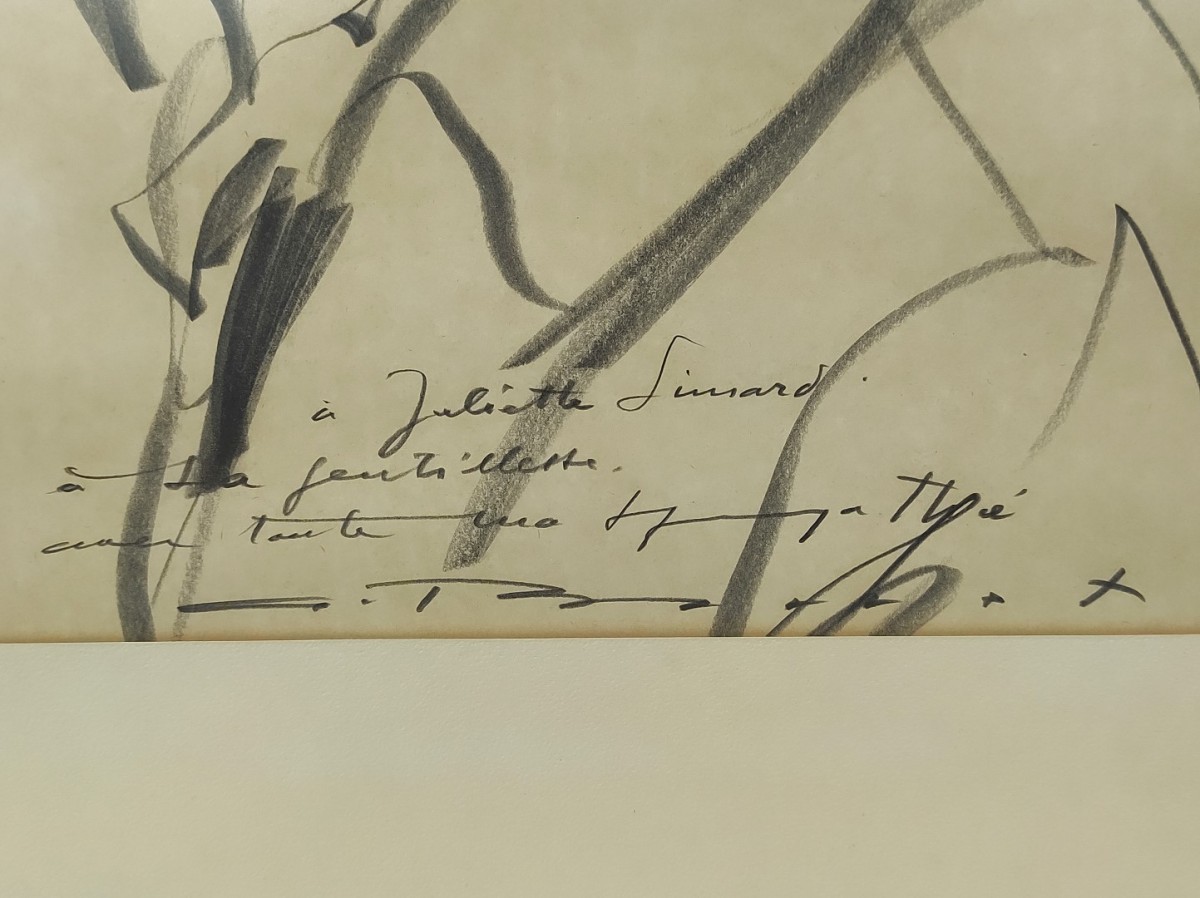 à Juliette Simard.
à sa gentillesse.
avec toute ma sympathie